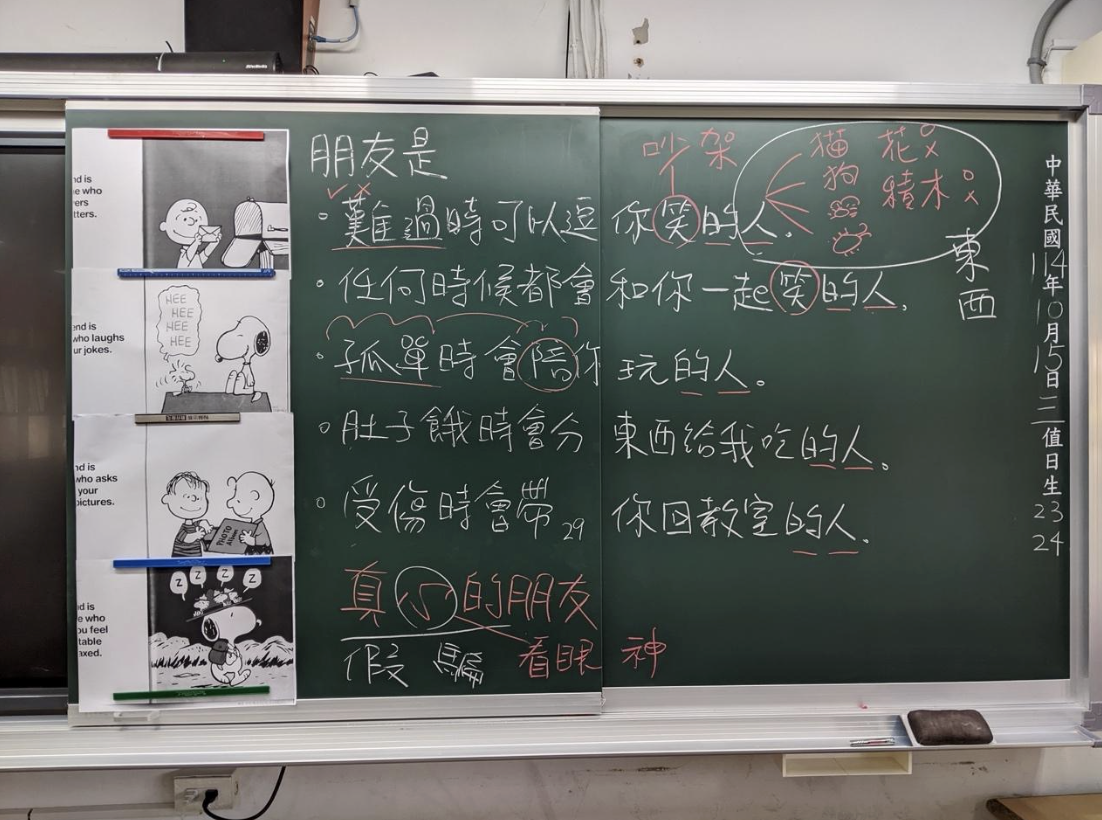 nd is
e who
ers
tters.
HEE
HEE
HEE
HEE
end is
who laughs
ur jokes.
nd is
who asks
your
pictures.
PHOTO
Album
Z Z Z Z
nd is
e who
ou feel
table
xed.
朋友是
✓ ✗
。難過時可以逗你笑的人。
。任何時候都會和你一起笑的人。
。孤單時會陪你玩的人。
。肚子餓時會分東西給我吃的人。
。受傷時會帶你回教室的人。
29
真心的朋友
假 騙 看眼神
吵架
貓 花
狗 積木
東西
中華民國114年10月15日三值日生
23
24